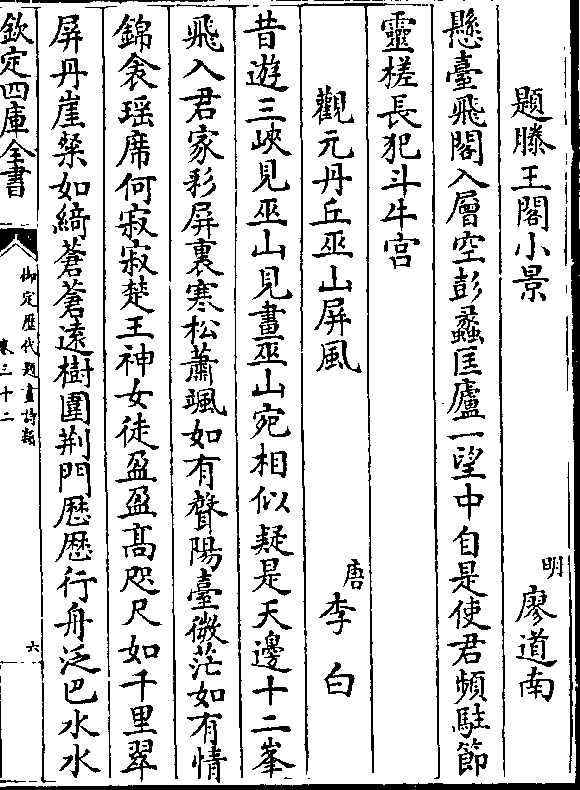 題滕王閣小景
明 廖道南
懸臺飛閣入層空彭蠡匡廬一望中自是使君頻駐節
靈槎長犯斗牛宮
觀元丹丘巫山屏風
唐 李白
昔遊三峽見巫山見畫巫山宛相似疑是天邊十二峯
飛入君家彩屏裏寒松蕭颯如有聲陽臺微茫如有情
錦衾瑶席何寂寂楚王神女徒盈盈高咫尺如千里翠
屏丹崖粲如綺蒼蒼遠樹圍荆門歴歴行舟泛巴水水
欽定四庫全書
御定歴代題畫詩類
卷三十二
六